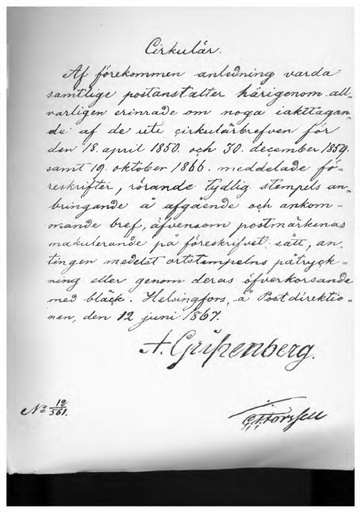 Cirkulär.
Af förekommen anledning varda
samtlige postanstalter härigenom all-
varligen erinrade om noga iakttagan-
de af de uti cirkulärbrefven för
den 18 april 1850 och 30 december 1859
samt 19 oktober 1866 meddelade fö-
reskrifter, rörande tydlig stempels an-
bringande å afgående och ankom-
mande bref, äfvensom postmärkenas
makulerande på föreskrifvet sätt, an-
tingen medelst ortstämpelns påtryck-
ning eller genom deras öfverkorsande
med bläck. Helsingfors, å Postdirektio-
nen, den 12 juni 1867.
A. Gripenberg.
No 12/561.